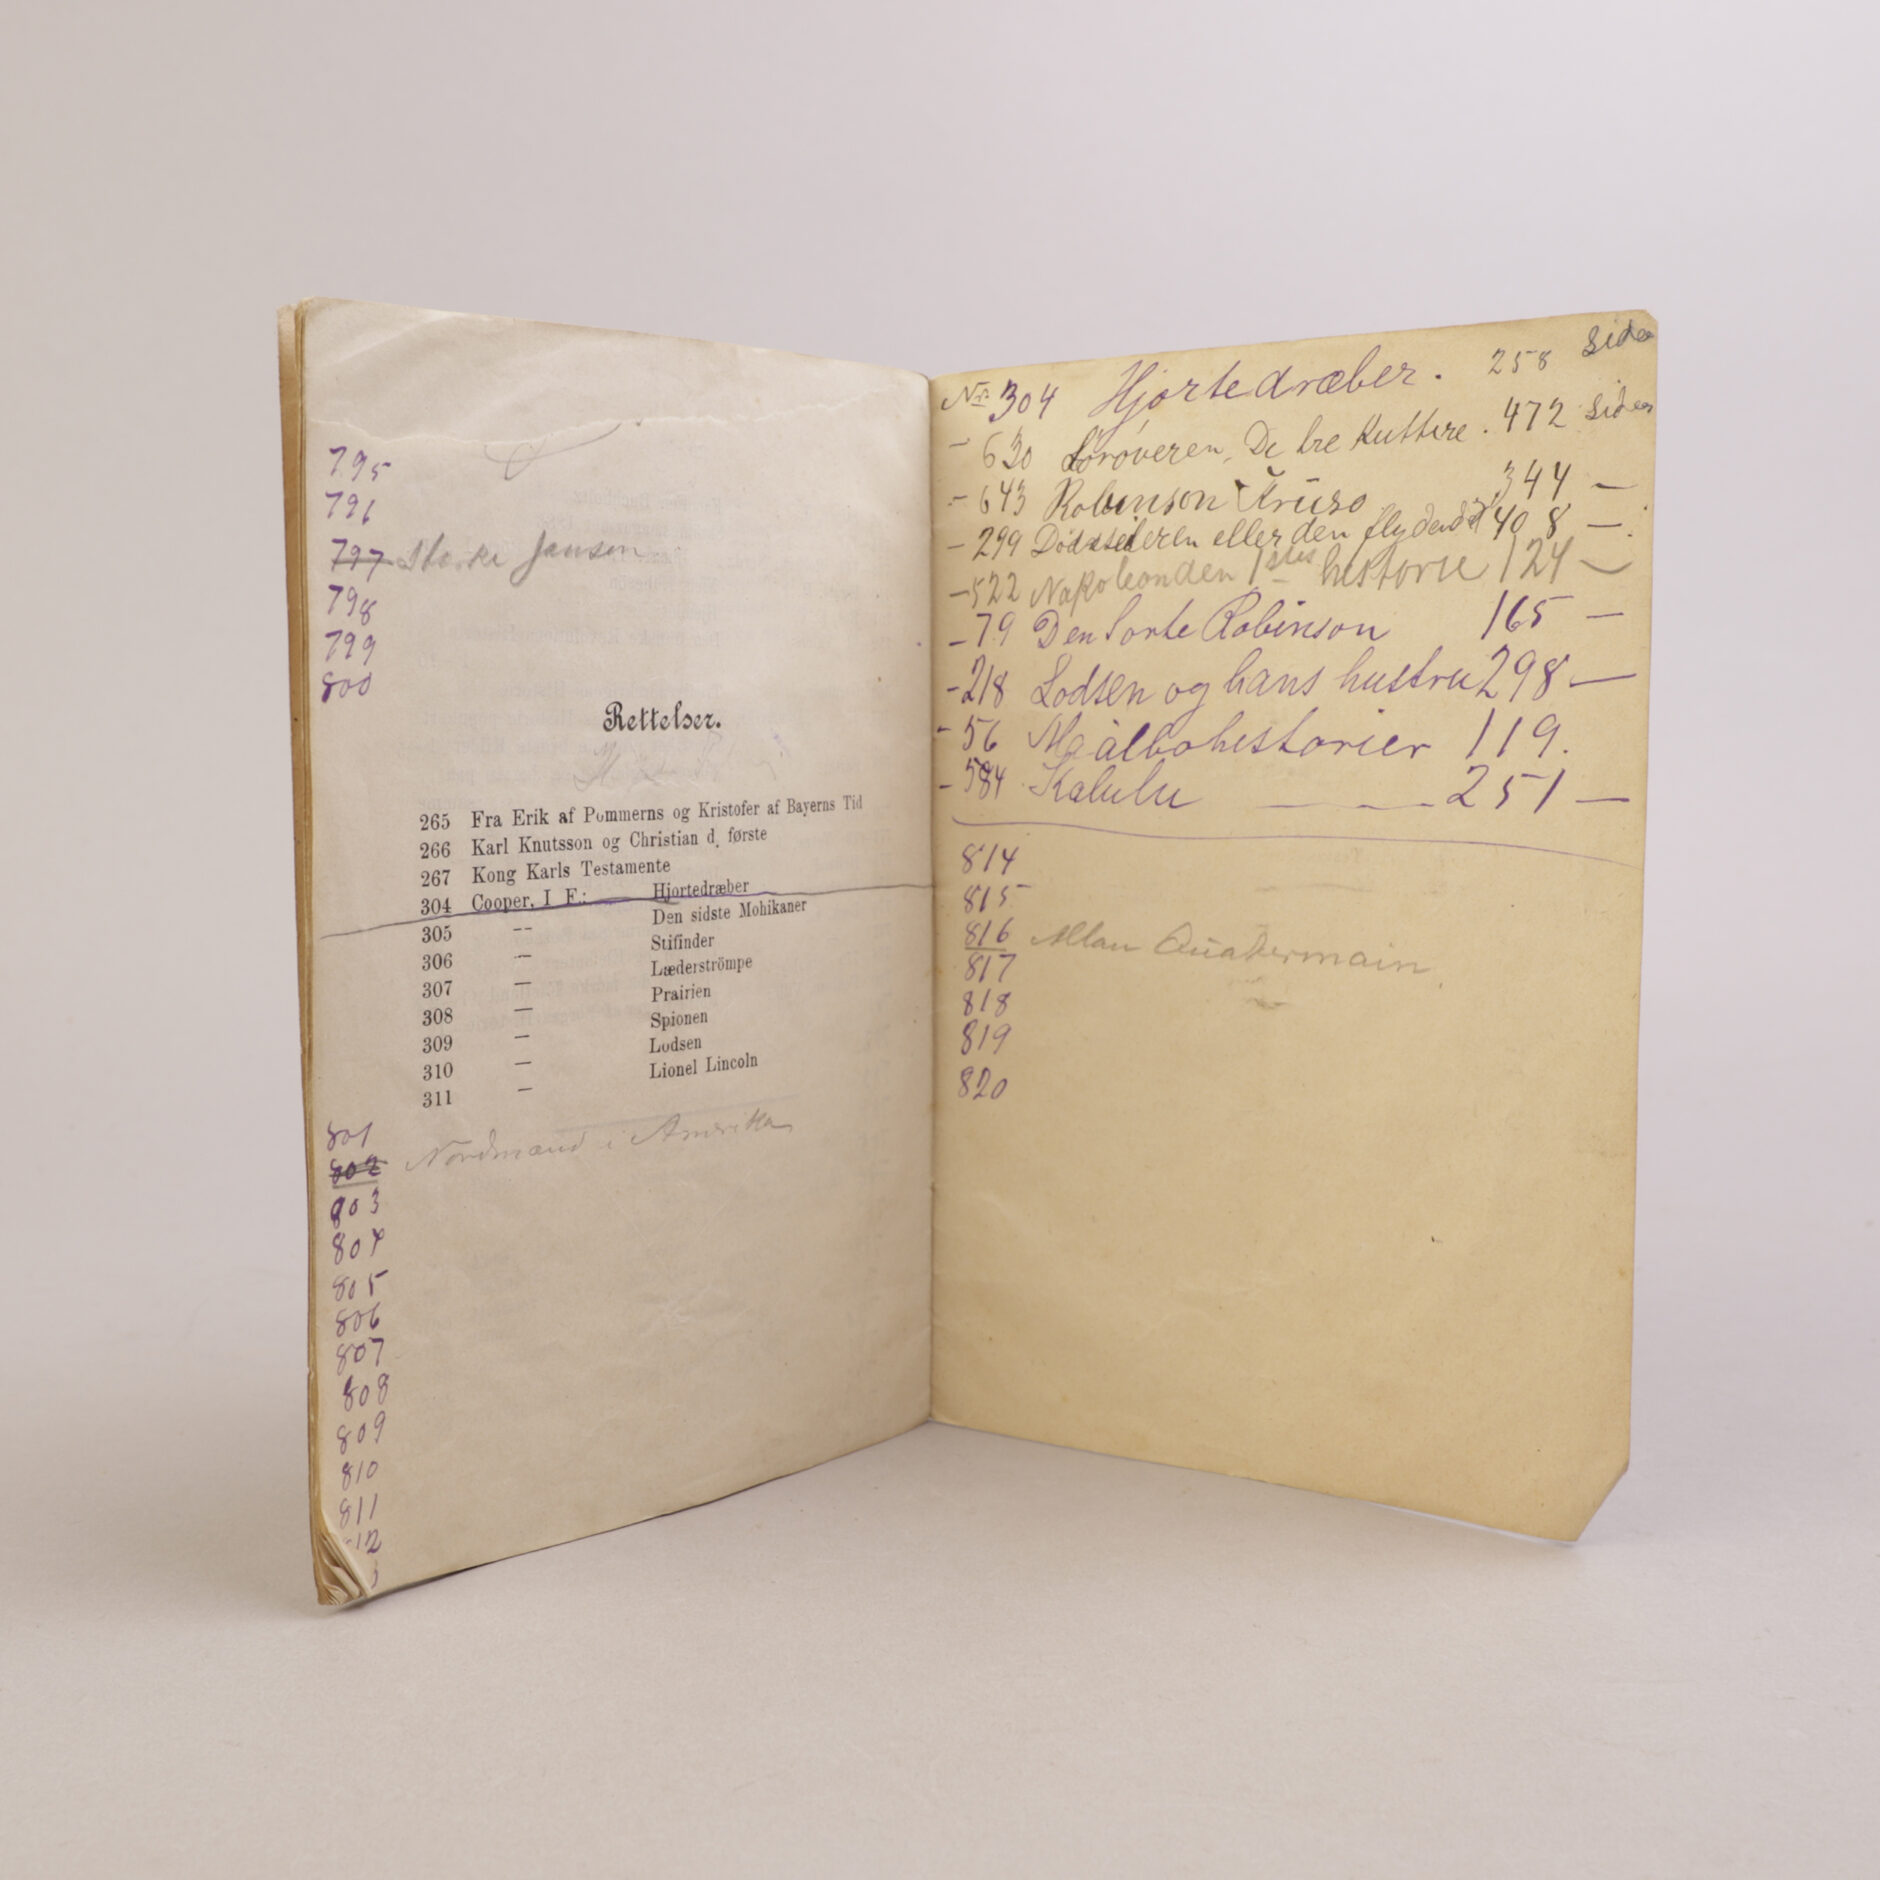 795
796
797 Stærke Jansen
798
799
800
Rettelser.
265 Fra Erik af Pommerns og Kristofer af Bayerns Tid
266 Karl Knutsson og Christian d. første
267 Kong Karls Testamente
304 Cooper, I F.: Hjortedræber
305 -- Den sidste Mohikaner
306 — Stifinder
307 — Læderströmpe
308 — Prairien
309 — Spionen
310 — Lodsen
311 — Lionel Lincoln
801
802 Nordmænd i Amerika
803
804
805
806
807
808
809
810
811
12
Nr. 304 Hjortedræber. 258 sider
- 630 Sørøveren, De tre Kuttere. 472 sider
- 643 Robinson Kruso 344 —
- 299 Dødsseileren eller den flydende 408 —
- 522 Napoleon den 1stes historie 124 —
- 79 Den Sorte Robinson 165 —
- 218 Lodsen og hans hustru 298 —
- 56 Maalbohistorier 119.
- 584 Kalulu — — — 251 —
814
815
816 Allan Quatermain
817
818
819
820